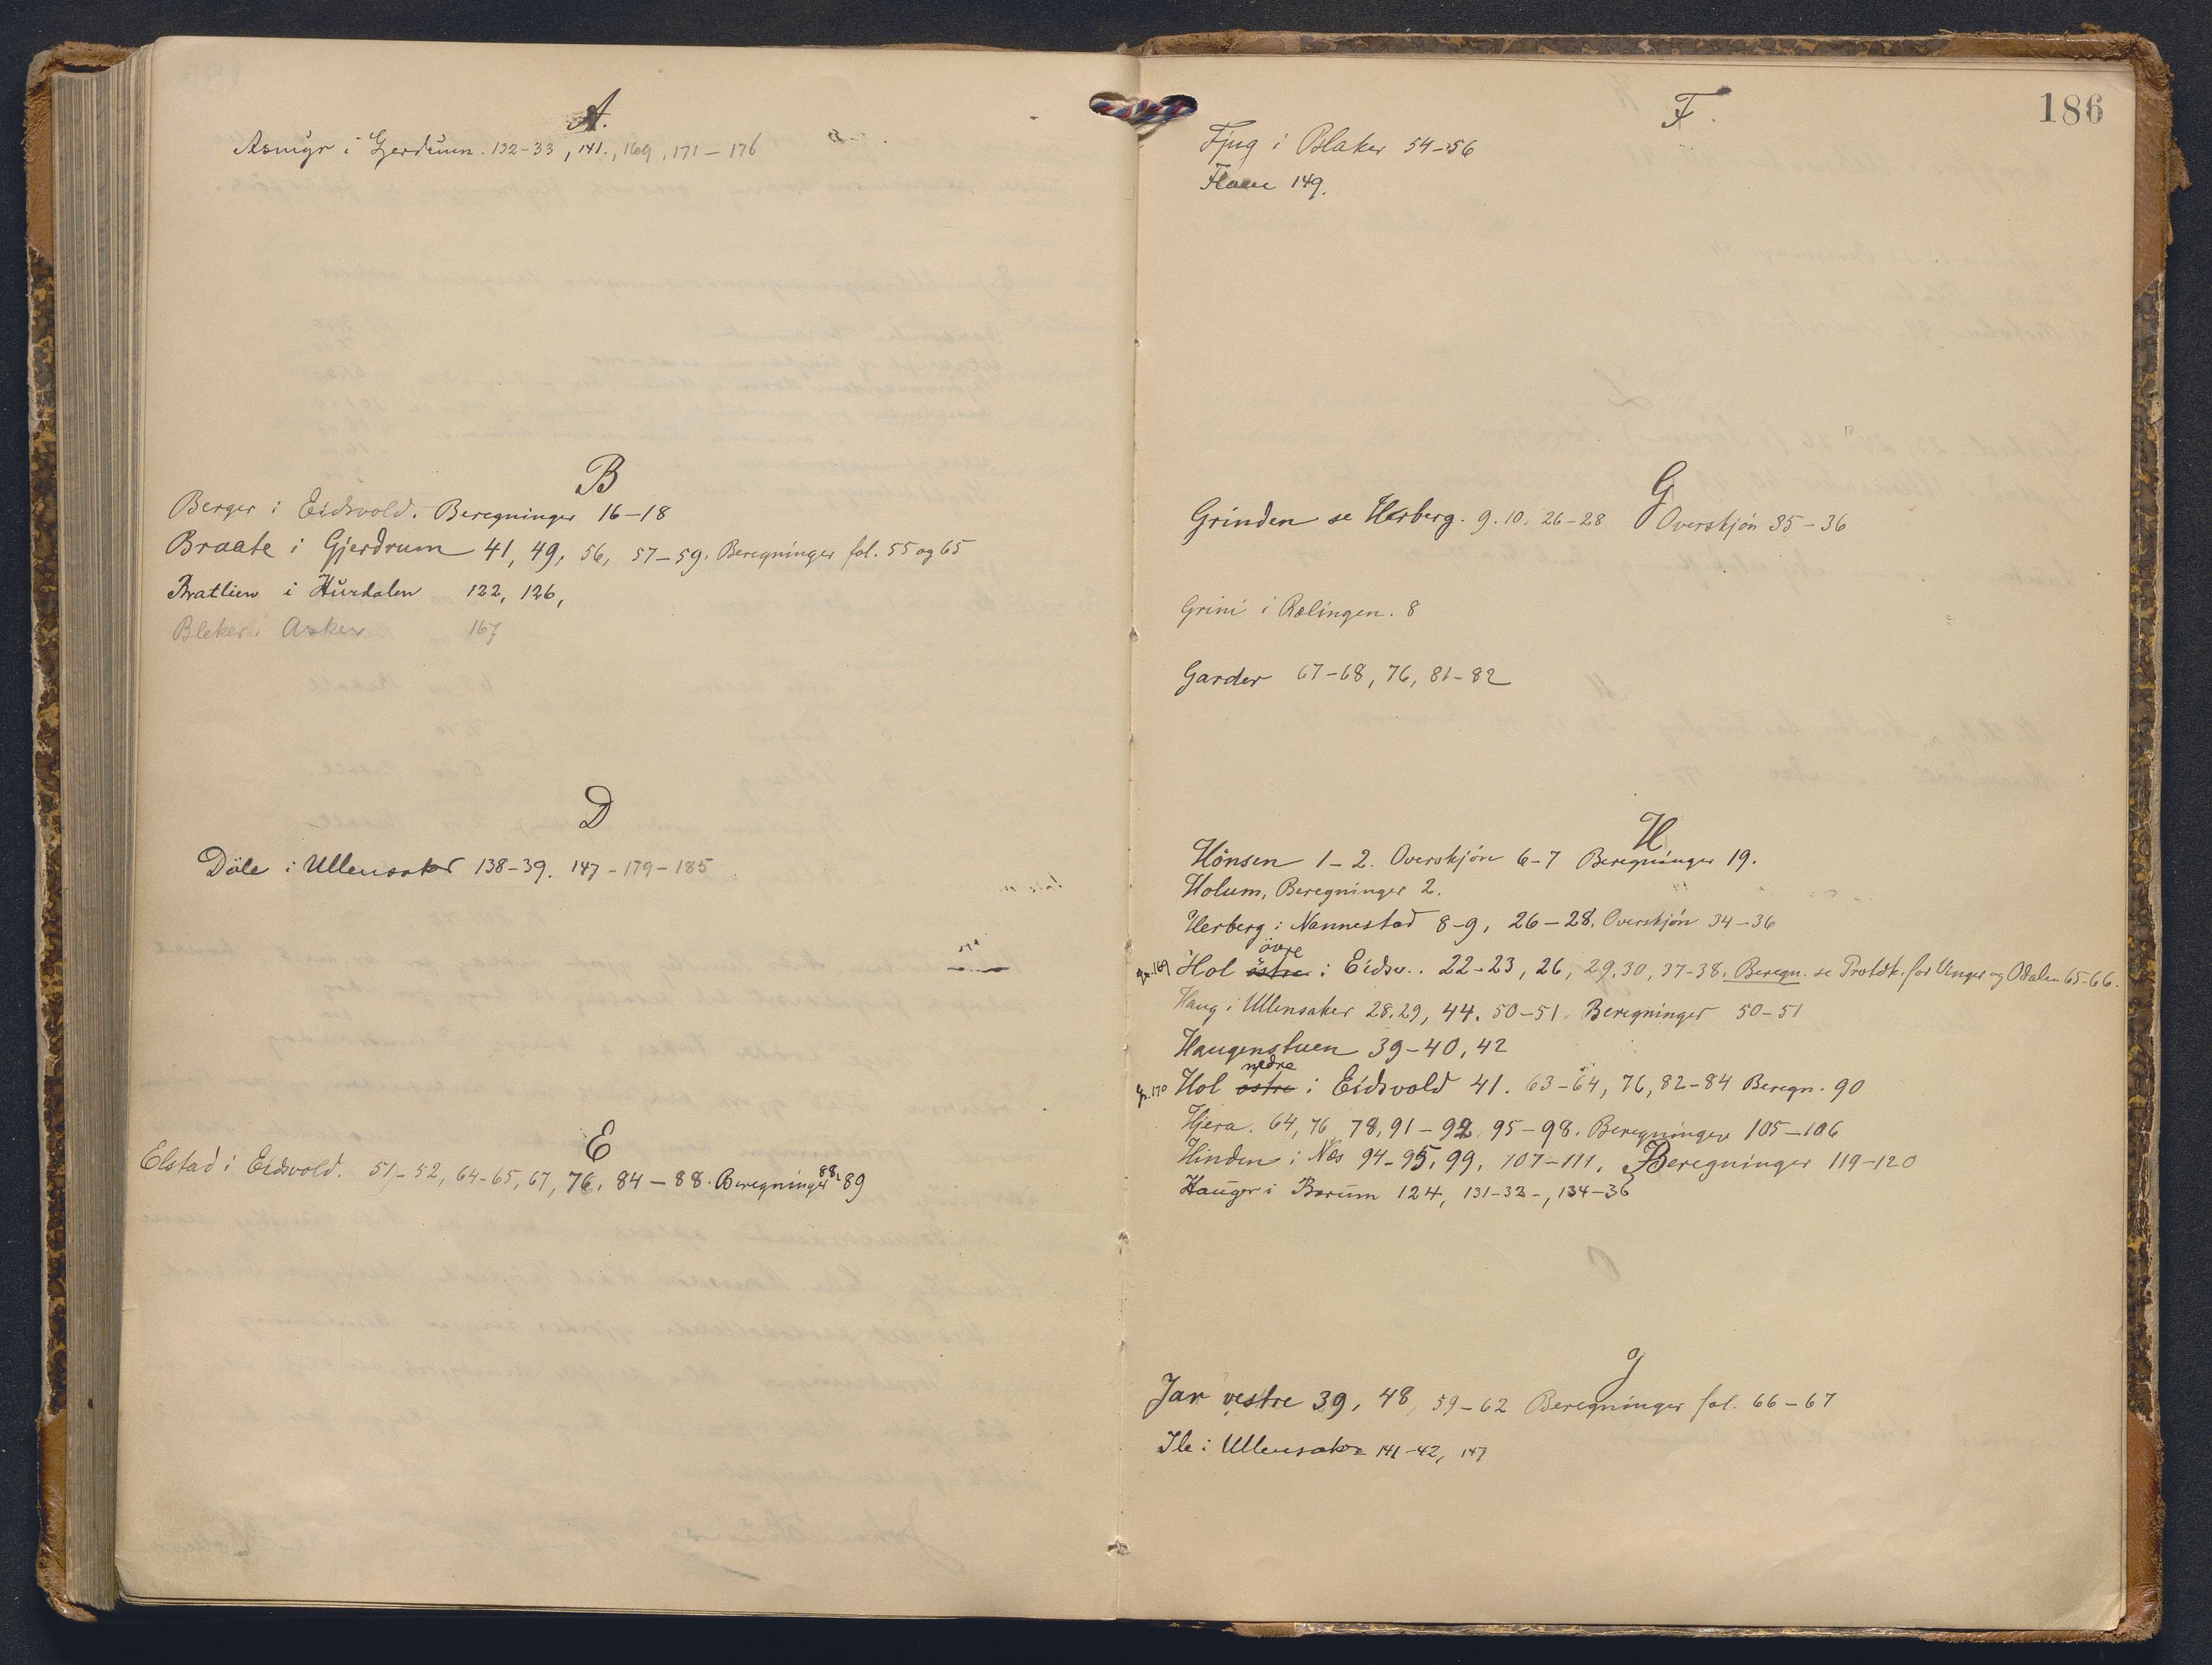 A.
Asmyr i Gjerdrum. 132-33, 141., 169, 171-176
B
Berger i Eidsvold. Beregninger 16-18
Braate i Gjerdrum 41, 49, 56, 57-59. Beregninger fol. 55 og 65
Bratlien i Hurdalen 122, 126,
Bleker i Asker 167
D
Döle i Ullensaker 138-39. 147-179-185
E
Elstad i Eidsvold. 51-52, 64-65, 67, 76, 84-88. Beregninger 88-89
186
F.
Fjug i Blaker 54-56
149.
G
Grinden se Herberg. 9. 10. 26-28 Overskjön 35-36
Grini i Rælingen. 8
Garder 67-68, 76, 81-82
H
Hönsen 1-2. Overskjön 6-7 Beregninger 19.
Holum, Beregninger 2.
Herberg i Nannestad 8-9, 26-28. Overskjön 34-36
gr. 169 Hol östre övre i Eidsv.. 22-23, 26, 29.30, 37-38. Beregn. se Protok. for Vinger og Odalen 65-66.
Haug i Ullensaker 28.29, 44. 50-51. Beregninger 50-51
Haugenstuen 39-40, 42
gr. 170 Hol östre nedre i Eidsvold 41. 63-64, 76, 82-84 Beregn. 90
Hjera. 64, 76 78, 91-92, 95-98. Beregninger 105-106
Hinden i Nes 94-95, 99, 107-111. Beregninger 119-120
Hauger i Bærum 124, 131-32-, 134-36
J
Jar vestre 39, 48, 59-62 Beregninger fol. 66-67
Ile i Ullensaker 141-42, 147